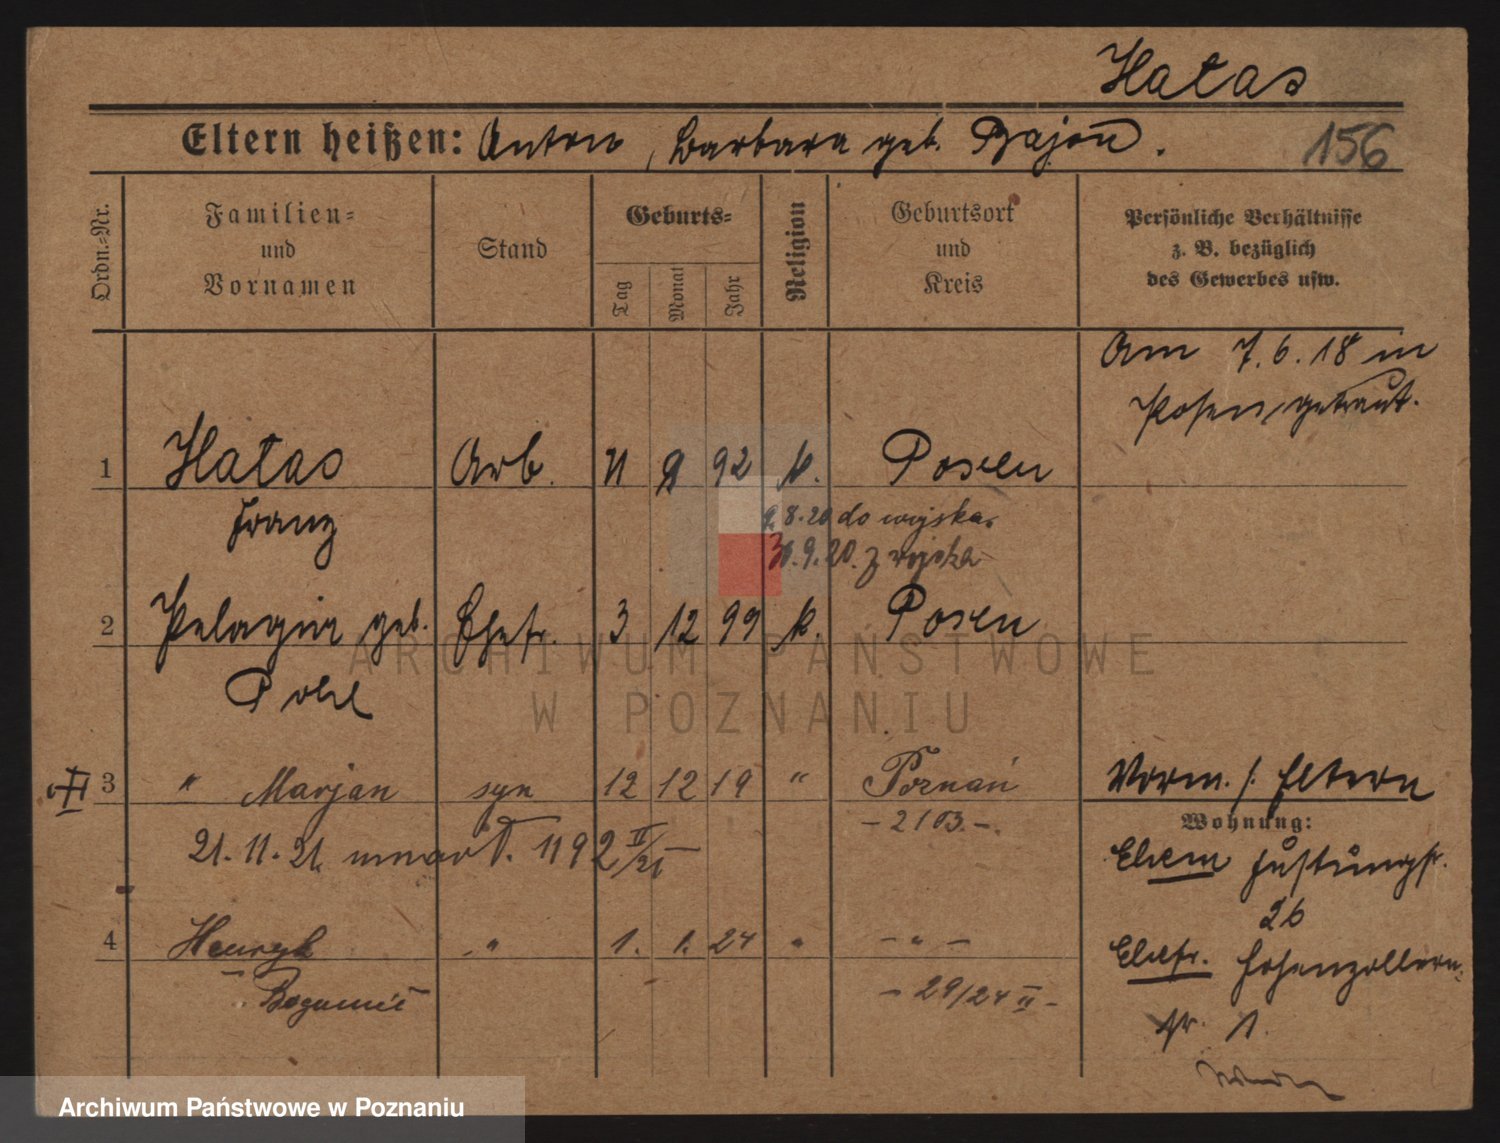 Hałas
Eltern heißen: Anton, Barbara geb. Bajon.
156
Ordn.=Nr.
Familien=
und
Vornamen
Stand
Geburts=
Tag
Monat
Jahr
Religion
Geburtsort
und
Kreis
Persönliche Verhältnisse
z. B. bezüglich
des Gewerbes usw.
Am 7.6.18 in
Posen getraut.
1 Hałas Arb. 11 9 92 k. Posen
Franz
9.8.20 do wojska.
30.9.20. z wojska
2 Pelagia geb. Ehefr. 3 12 99 k. Posen
ARCHIWUM PAŃSTWOWE
W POZNANIU
3 " Marjan syn 12 12 19 " Poznań
- 2103. -
21.11.21 umarł. 1192 II/21
Vorm. s. Eltern
Wohnung:
Ehem
26
4 Henryk " 1. 1. 24 " - " -
Bogumił
- 29/24 II -
Ehefr. Hohenzollern-
str. 1.
Archiwum Państwowe w Poznaniu